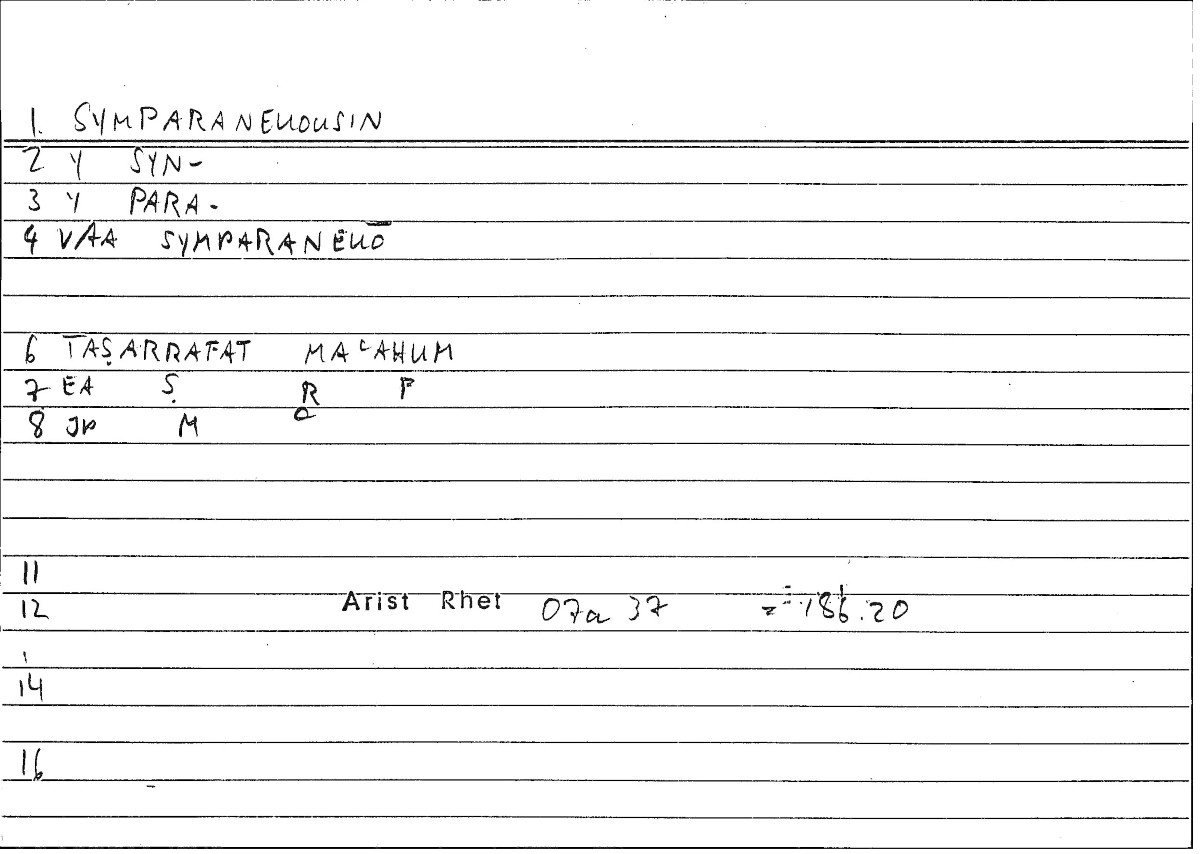 1. SYMPARANEUOUSIN
2 Y SYN-
3 Y PARA-
4 V/AA SYMPARANEUŌ
6 TAṢARRAFAT MAᶜAHUM
7 EA Ṣ R F
8 JP M C
11
12 Arist Rhet 07a 37 = 186.20
14
16